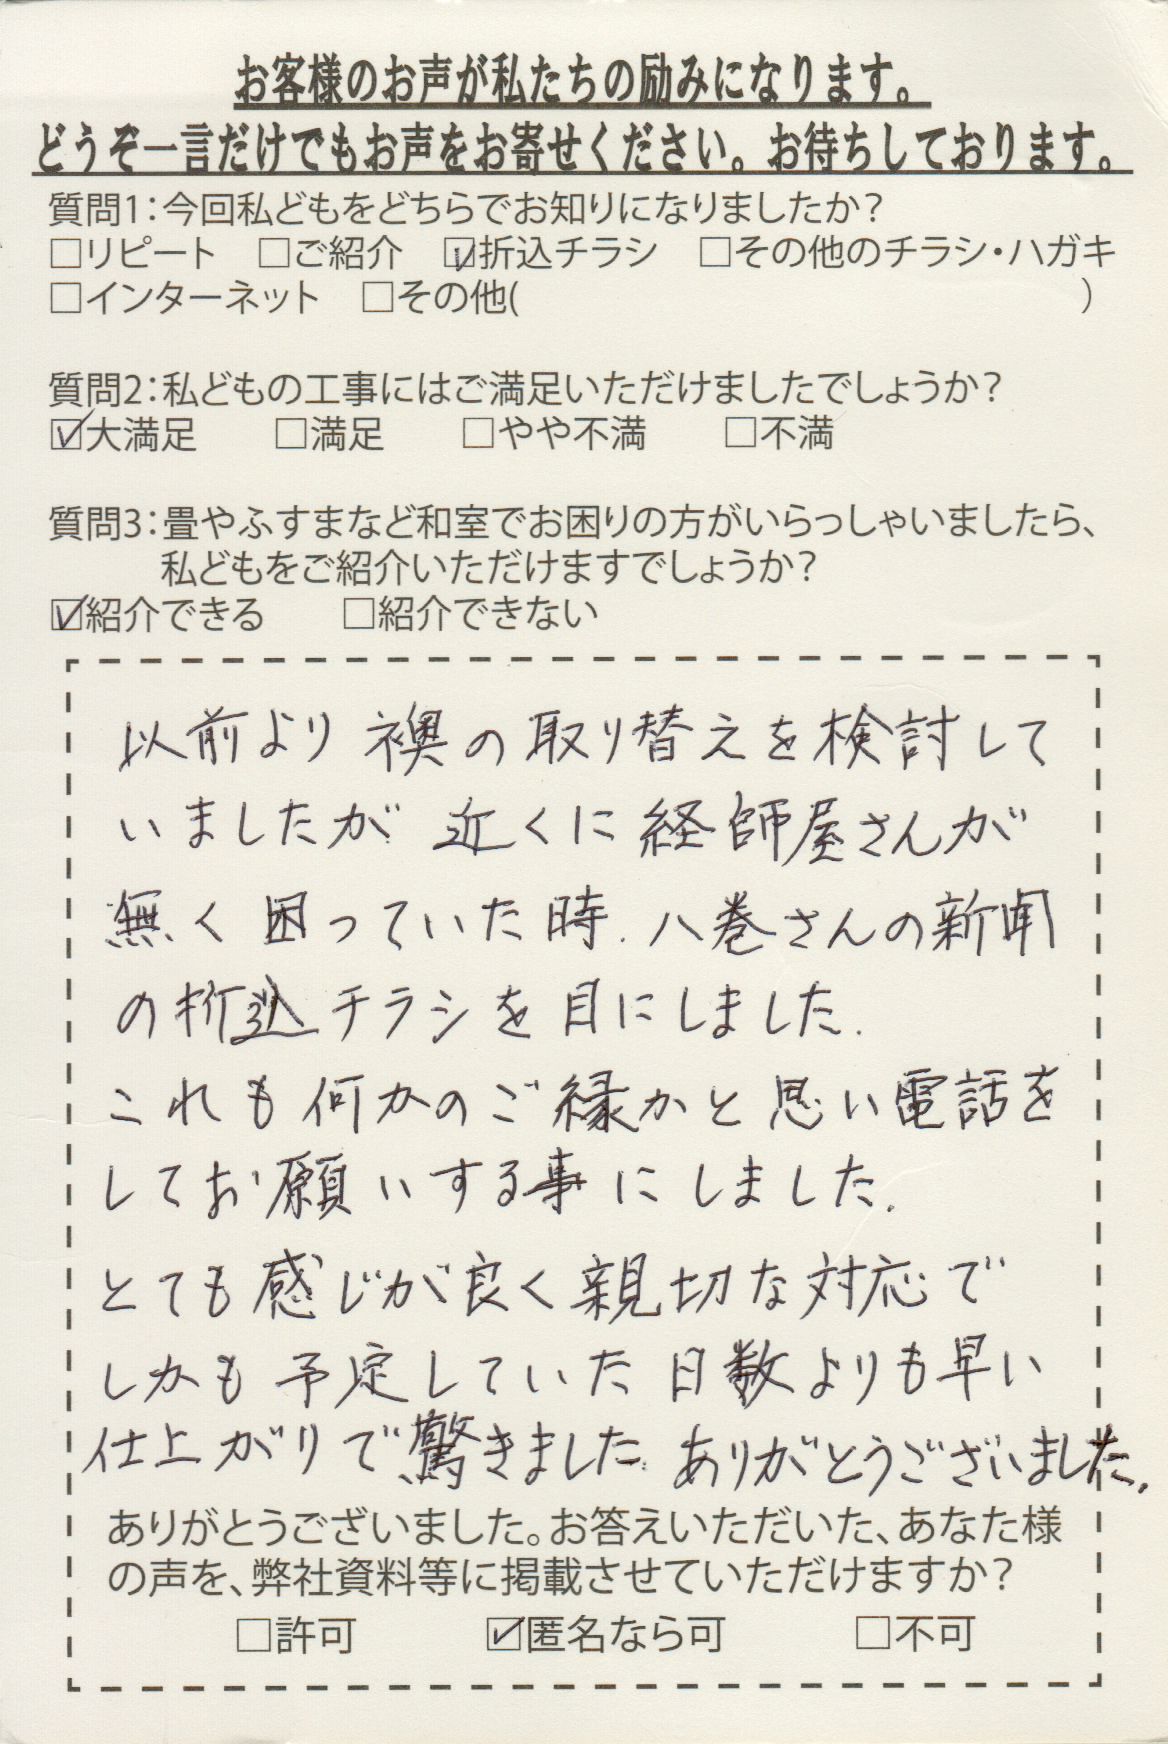 お客様のお声が私たちの励みになります。
どうぞ一言だけでもお声をお寄せください。お待ちしております。
質問1：今回私どもをどちらでお知りになりましたか？
□リピート　□ご紹介　☑折込チラシ　□その他のチラシ・ハガキ
□インターネット　□その他(　　　　　　　　　　)
質問2：私どもの工事にはご満足いただけましたでしょうか？
☑大満足　□満足　□やや不満　□不満
質問3：畳やふすまなど和室でお困りの方がいらっしゃいましたら、
私どもをご紹介いただけますでしょうか？
☑紹介できる　□紹介できない
以前より襖の取り替えを検討して
いましたが 近くに経師屋さんが
無く困っていた時. 八巻さんの新聞
の折込チラシを目にしました.
これも何かのご縁かと思い電話を
してお願いする事にしました.
とても感じが良く親切な対応で
しかも予定していた日数よりも早い
仕上がりで驚きました. ありがとうございました.
ありがとうございました。お答えいただいた、あなた様
の声を、弊社資料等に掲載させていただけますか？
□許可　☑匿名なら可　□不可